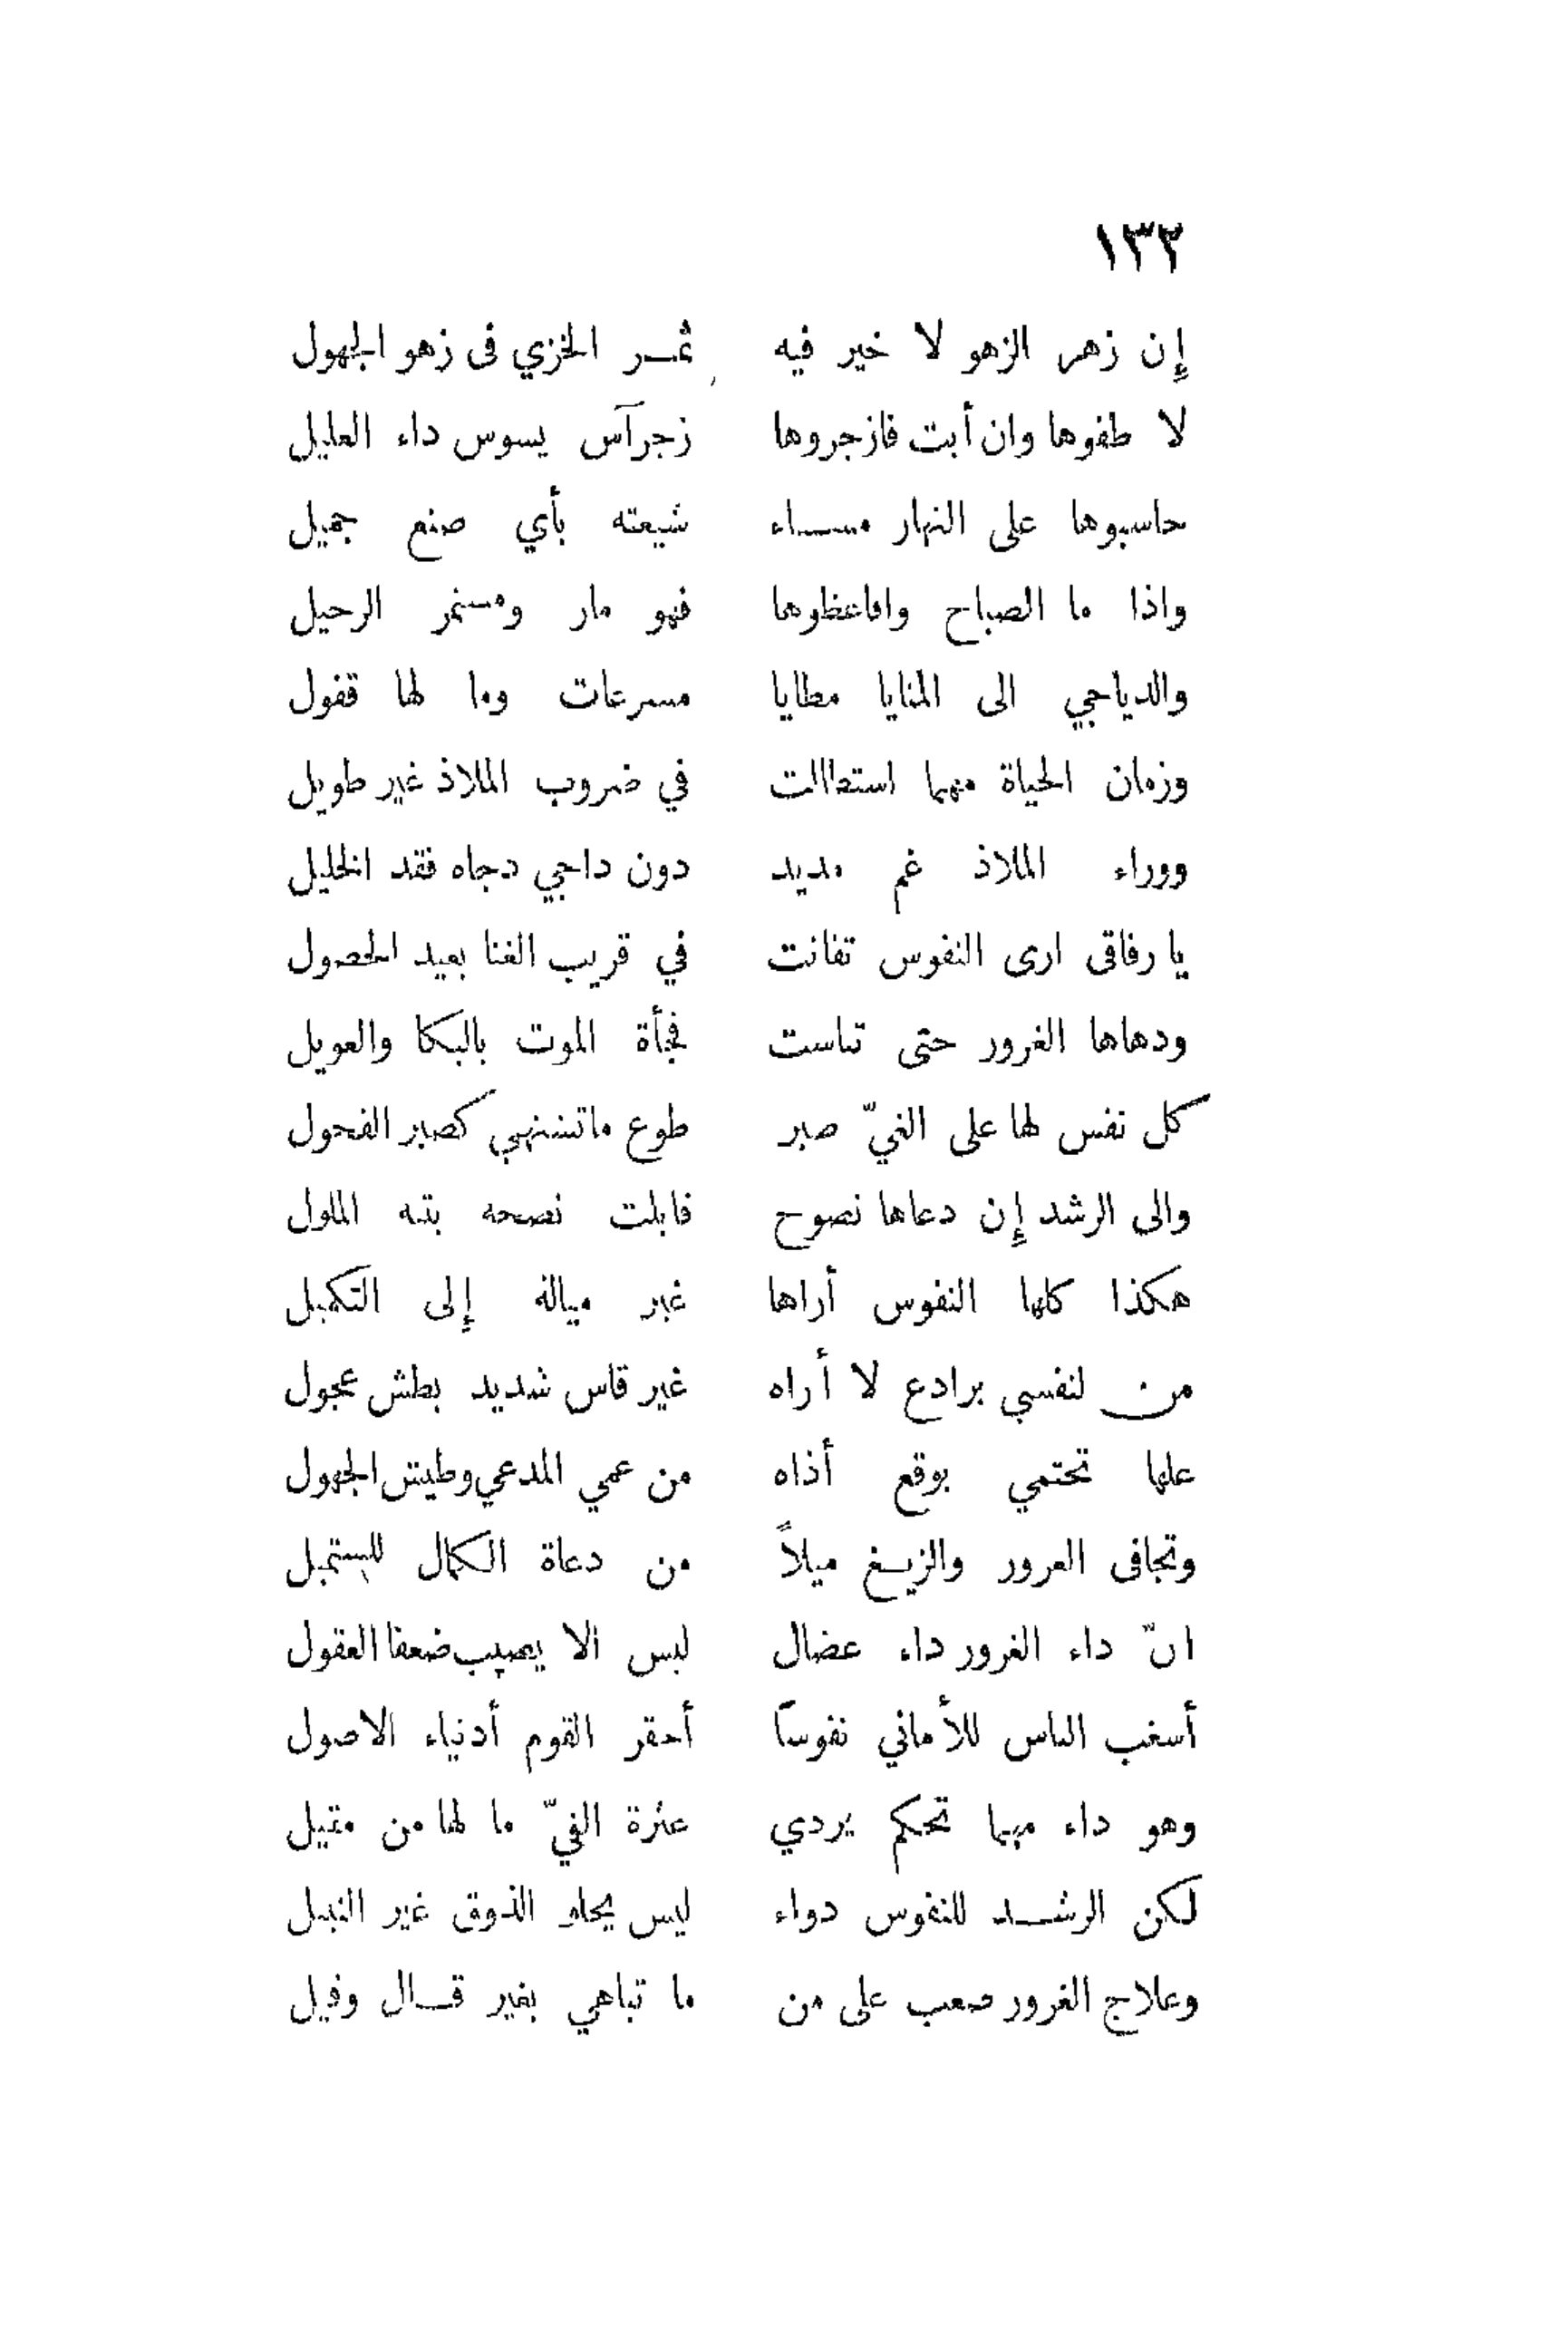 ١٣٢
إن زهر الزهو لا خير فيه ثمر الخزي فى زهو الجهول
لا طفوها وان أبت فازجروها زجرآس يسوس داء العليل
حاسبوها على النهار مساء شيعته بأي صنع جميل
واذا ما الصباح وافاعظوها فهو مار ومستمر الرحيل
والدياجي الى المنايا مطايا مسرعات وما لها قفول
وزمان الحياة مهما استطالت في ضروب الملاذ غير طويل
ووراء الملاذ غم مديد دون داجي دجاه فقد الخليل
يا رفاقى ارى النفوس تفانت في قريب الفنا بعيد الحصول
ودهاها الغرور حتى تناست فجأة الموت بالبكا والعويل
كل نفس لها على الغيّ صبر طوع ماتشتهي كصبر الفحول
والى الرشد إن دعاها نصوح قابلت نصحه بتيه الملول
هكذا كلها النفوس أراها غير ميالة إلى التكميل
من لنفسي برادع لا أراه غير قاس شديد بطش عجول
علها تحتمي بوقع أذاه من عمي المدعي وطيش الجهول
وتجافى الغرور والزيغ ميلاً من دعاة الكمال للمستميل
انّ داء الغرور داء عضال ليس الا يصيب ضعفا العقول
أسغب الناس للأماني نفوساً أحقر القوم أدنياء الاصول
وهو داء مهما تحكم يردي عثرة الغيّ ما لها من مقيل
لكن الرشد للنفوس دواء ليس يحلو الذوق غير النبيل
وعلاج الغرور صعب على من ما تباهي بغير قال وقيل